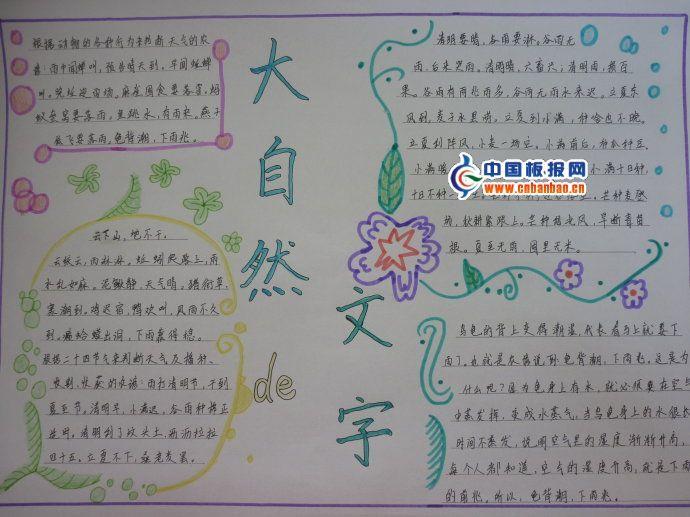 根据动物的各种行为来判断天气的农
谚:雨中闻蝉叫,预告晴天到。早间蛙蝉
叫。晚些迎雨场。麻雀囤食要落雪,蚂
蚁垒窝要落雨。鱼跳水,有雨来。燕子
低飞要落雨。龟背潮,下雨兆。
大自然
de
文字
云下山,地不干。
云绞云,雨淋淋。蚯蚓爬路上,雨
水乱如麻。泥鳅静,天气晴。
寒潮到。鸡迟宿,鸭欢叫,风雨不久
到。癞蛤蟆出洞,下雨靠得稳。
根据二十四节气来判断天气及播种、
收获的农谚:雨打清明节,干到
夏至节。清明早,小满迟,谷雨种棉正
适时。清明刮了坟头土,沥沥拉拉
四十五。立夏不下,桑老麦罢。
清明要晴,谷雨要淋。谷雨无
雨,后来哭雨。清明晴,六畜兴;清明雨,损百
果。谷雨有雨兆雨多,谷雨无雨水来迟。立夏东
风到,麦子水里涝。立夏到小满,种啥也不晚。
立夏到阵风,小麦一场空。小满前后,种瓜种豆。
小满暖 小满十日种,
十日不种一 芒种麦登
场,秋耕紧跟上。芒种刮北风,旱断青苗
根。夏至无雨,囤里无米。
中国板报网
www.cnbanbao.cn
乌龟的背上变得潮湿,代表着马上就要下
雨了。也就是农谚说到龟背潮,下雨兆。这是为
什么呢?因为龟身上有水,就必须要在空气
中蒸发挥,变成水蒸气,当乌龟身上的水很长
时间不蒸发,说明空气里的湿度渐渐升高,
每个人都知道,空气的湿度升高,就是下雨
的前兆。所以,龟背潮,下雨兆。